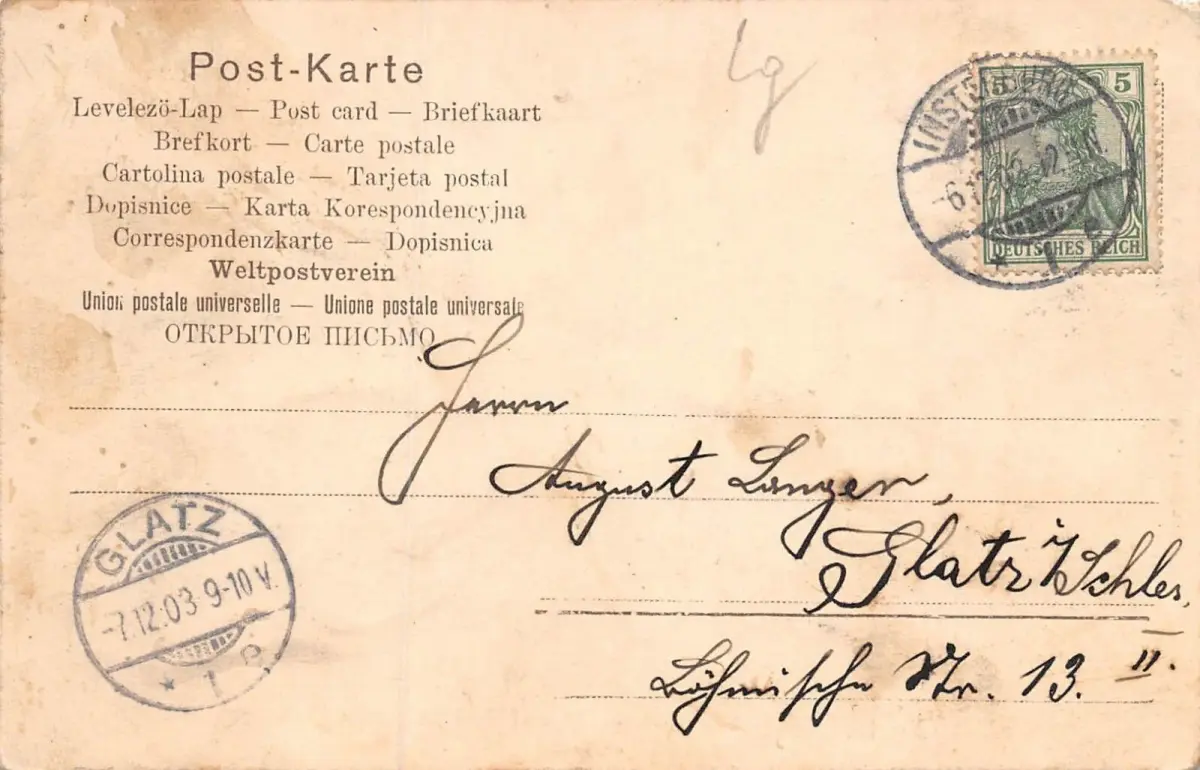 Post-Karte
Levelezö-Lap — Post card — Briefkaart
Brefkort — Carte postale
Cartolina postale — Tarjeta postal
Dopisnice — Karta Korespondencyjna
Correspondenzkarte — Dopisnica
Weltpostverein
Union postale universelle — Unione postale universale
ОТКРЫТОЕ ПИСЬМО
5 5
DEUTSCHES REICH
INSTERBURG
Herrn
August Langer,
Glatz i/Schles.
Böhmische Str. 13. II.
GLATZ
-7.12.03 9-10 V.
* 1 e